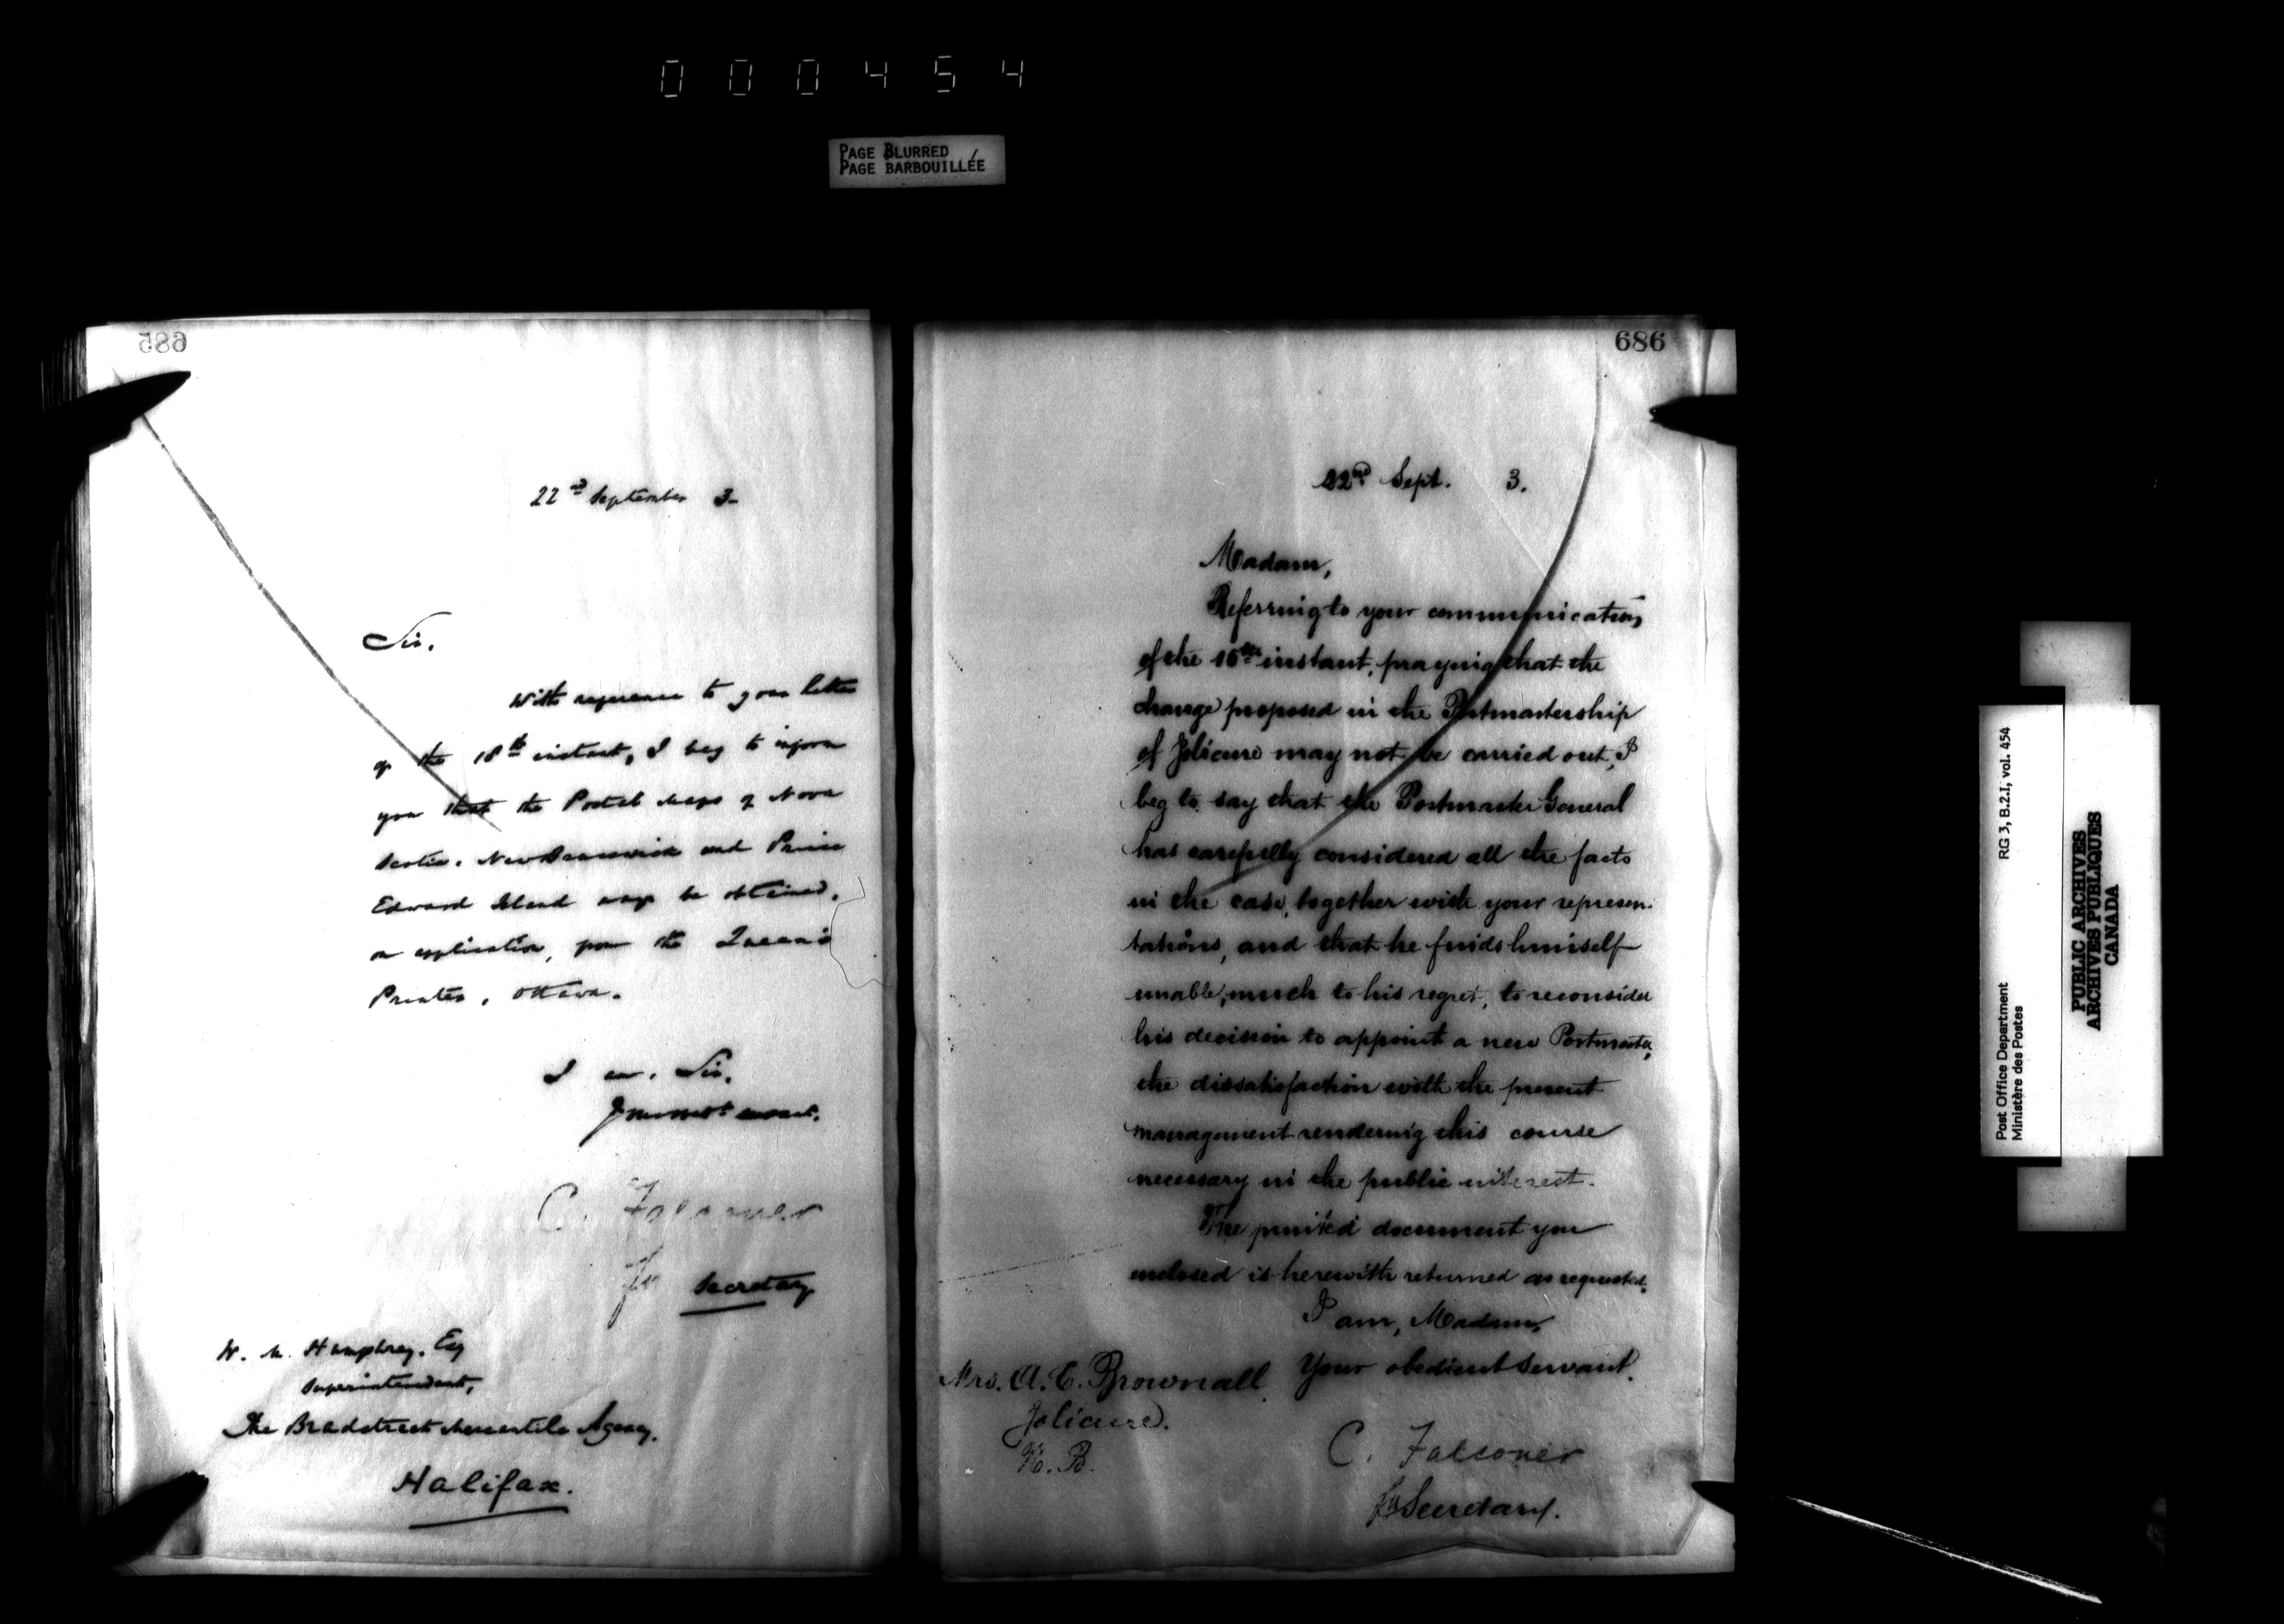 000454
PAGE BLURRED
PAGE BARBOUILLÉE
685
22nd September 3-
Sir.
With reference to your letter
of the 18th instant, I beg to inform
you that the Postal Maps of Nova
Scotia, New Brunswick and Prince
Edward Island may be obtained,
on application, from the Queen's
Printer, Ottawa.
I am, Sir,
Your most servant.
C. Falconer
for Secretary
W. M. Humphrey, Esq
Superintendent,
The Bradstreet Mercantile Agency,
Halifax.
686
22nd Sept. 3.
Madam,
Referring to your communication
of the 15th instant, praying that the
change proposed in the Postmastership
of Jolicure may not be carried out, I
beg to say that the Postmaster General
has carefully considered all the facts
in the case, together with your represen-
tations, and that he finds himself
unable, much to his regret, to reconsider
his decision to appoint a new Postmaster,
the dissatisfaction with the present
management rendering this course
necessary in the public interest.
The printed document you
enclosed is herewith returned as requested.
I am, Madam,
Your obedient Servant.
Mrs. A. E. Brownall
Jolicure.
N. B.
C. Falconer
for Secretary.
Post Office Department
Ministère des Postes
RG 3, B.2.I, vol. 454
PUBLIC ARCHIVES
ARCHIVES PUBLIQUES
CANADA